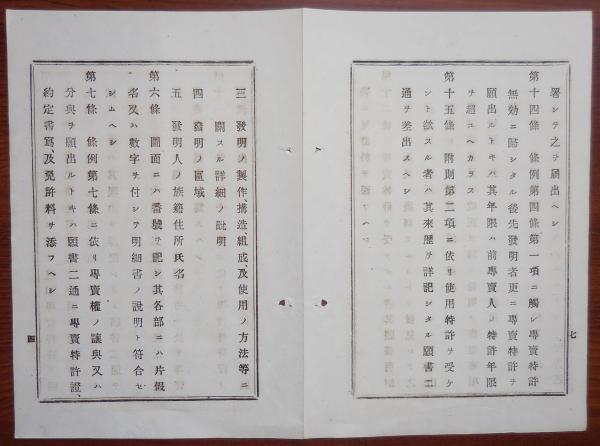 署シテ之ヲ届出ヘシ
第十四條 條例第四條第一項ニ觸レ專賣特許
無効ニ歸シタル後先發明者更ニ專賣特許ヲ
願出ルトキハ其年限ハ前專賣人ノ特許年限
ヲ超ユヘカラス
第十五條 附則第二項ニ依リ使用特許ヲ受ケ
ント欲スル者ハ其來歷ヲ詳記シタル願書二
通ヲ差出スヘシ
七
三 發明ノ製作、搆造、組成及使用ノ方法等ニ
關スル詳細ノ說明
四 發明ノ區域
五 發明人ノ族籍住所氏名
第六條 圖面ニハ番號ヲ記シ其各部ニハ片假
名又ハ數字ヲ付シテ明細書ノ說明ト符合セ
シムヘシ
第七條 條例第七條ニ依リ專賣權ノ讓與又ハ
分與ヲ願出ルトキハ願書二通ニ專賣特許證、
約定書寫、及免許料ヲ添フヘシ
四